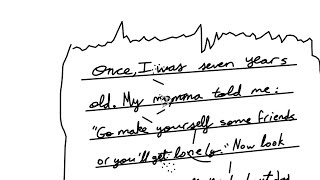 Once, I was seven years
old. My momma told me:
"Go make yourself some friends
or you'll get lonely." Now look